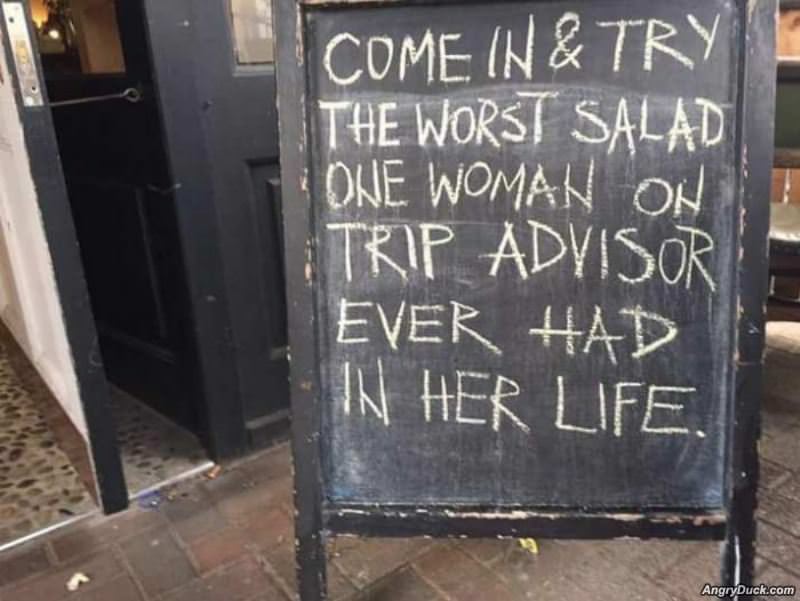 COME IN & TRY
THE WORST SALAD
ONE WOMAN ON
TRIP ADVISOR
EVER HAD
IN HER LIFE.
AngryDuck.com